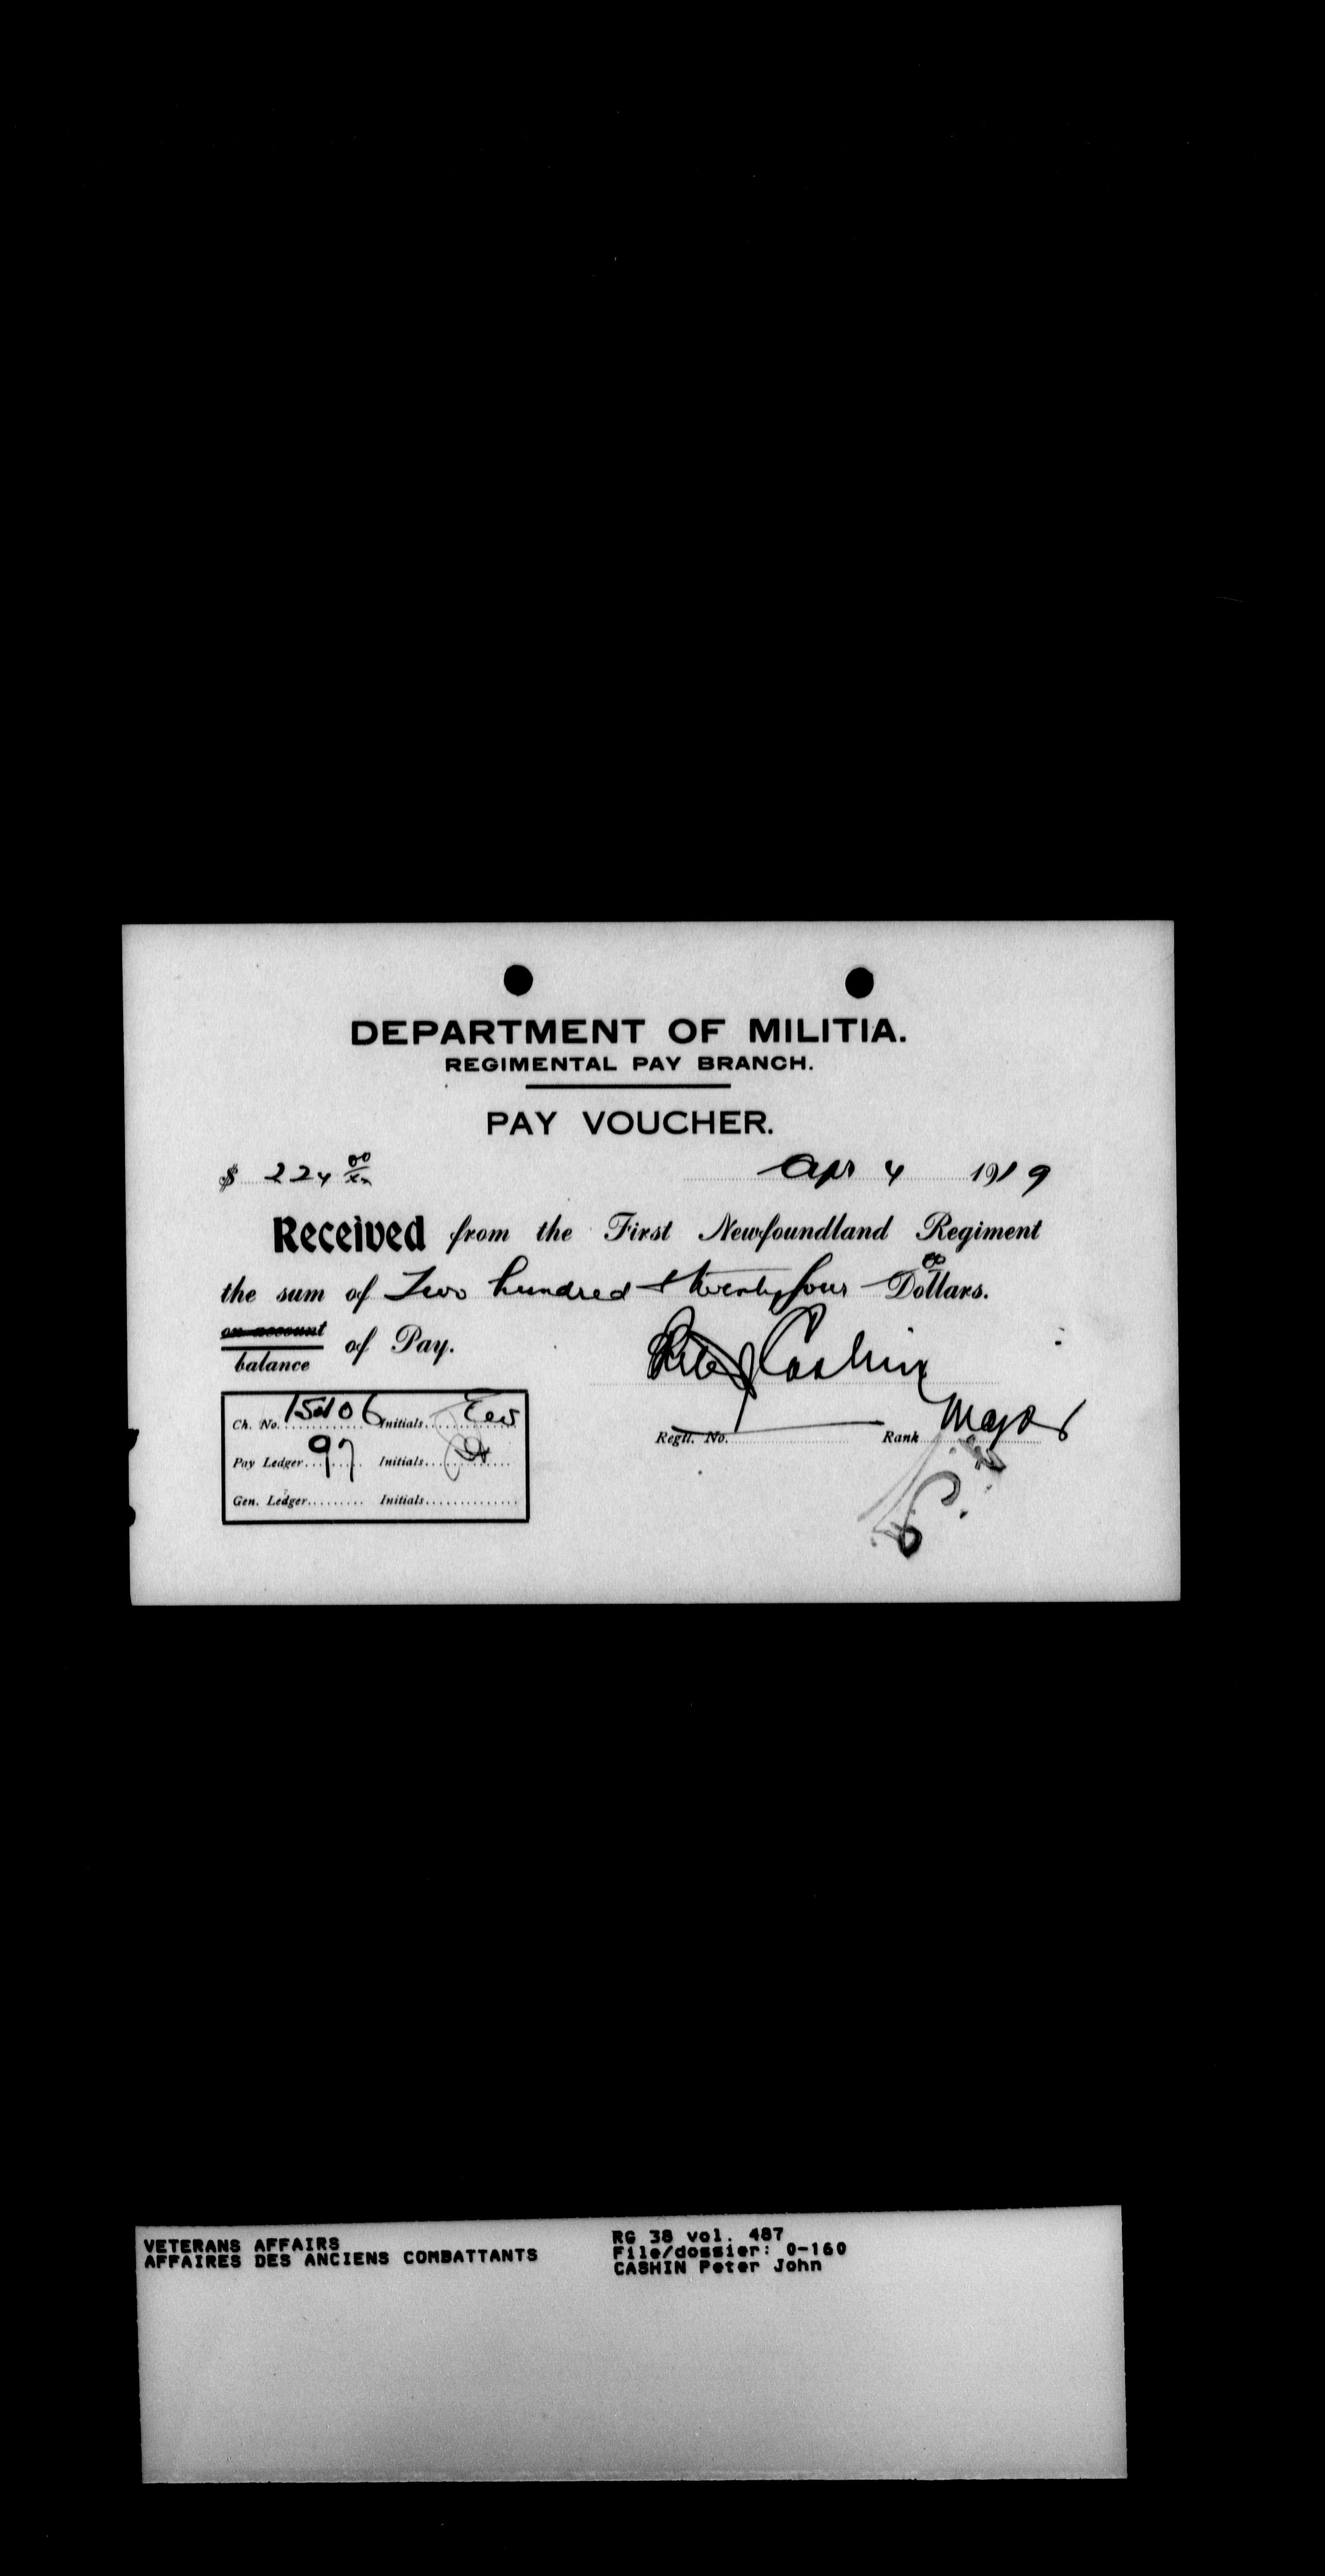 DEPARTMENT OF MILITIA.
REGIMENTAL PAY BRANCH.
PAY VOUCHER.
$ 224 00/xx Apr 4 1919
Received from the First Newfoundland Regiment
the sum of Two hundred & twenty four 00 Dollars.
on account
balance of Pay.
Peter Cashin
Ch. No. Initials
Regtl. No. Rank Major
Pay Ledger 97 Initials
Gen. Ledger Initials
VETERANS AFFAIRS
AFFAIRES DES ANCIENS COMBATTANTS
RG 38 vol. 487
File/dossier: 0-160
CASHIN Peter John